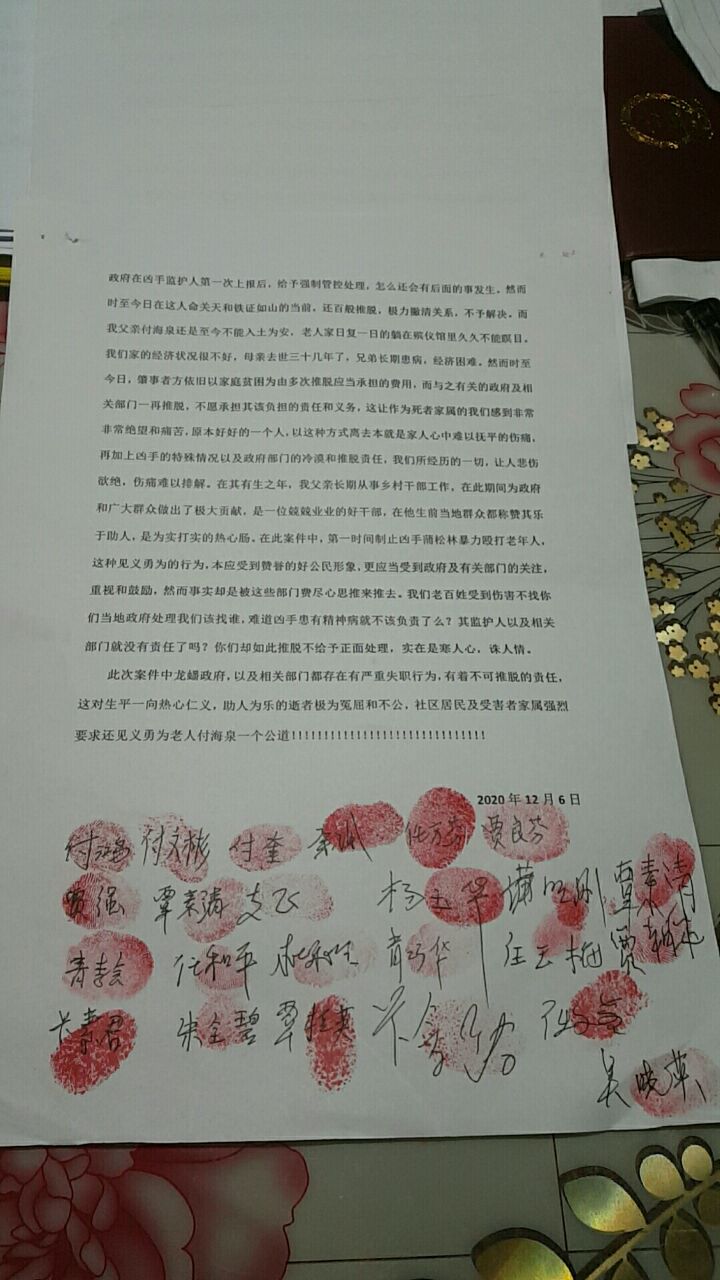 政府在凶手监护人第一次上报后，给予强制管控处理，怎么还会有后面的事发生，然而
时至今日在这人命关天和铁证如山的当前，还百般推脱，极力撇清关系，不予解决，而
我父亲付海泉还是至今不能入土为安，老人家日复一日的躺在殡仪馆里久久不能瞑目。
我们家的经济状况很不好，母亲去世三十几年了，兄弟长期患病，经济困难。然而时至
今日，肇事者方依旧以家庭贫困为由多次推脱应当承担的费用，而与之有关的政府及相
关部门一再推脱，不愿承担其该负担的责任和义务，这让作为死者家属的我们感到非常
非常绝望和痛苦，原本好好的一个人，以这种方式离去本就是家人心中难以抚平的伤痛，
再加上凶手的特殊情况以及政府部门的冷漠和推脱责任，我们所经历的一切，让人悲伤
欲绝，伤痛难以排解。在其有生之年，我父亲长期从事乡村干部工作，在此期间为政府
和广大群众做出了极大贡献，是一位兢兢业业的好干部，在他生前当地群众都称赞其乐
于助人，是为实打实的热心肠。在此案件中，第一时间制止凶手蒲松林暴力殴打老年人，
这种见义勇为的行为，本应受到赞誉的好公民形象，更应当受到政府及有关部门的关注，
重视和鼓励，然而事实却是被这些部门费尽心思推来推去。我们老百姓受到伤害不找你
们当地政府处理我们该找谁，难道凶手患有精神病就不该负责了么？其监护人以及相关
部门就没有责任了吗？你们却如此推脱不给予正面处理，实在是寒人心，诛人情。
此次案件中龙蟠政府，以及相关部门都存在有严重失职行为，有着不可推脱的责任，
这对生平一向热心仁义，助人为乐的逝者极为冤屈和不公，社区居民及受害者家属强烈
要求还见义勇为老人付海泉一个公道!!!!!!!!!!!!!!!!!!!!!!!!!!!!!!
2020 年 12 月 6 日
付鸿 付文彬 付奎 任万芬 贾良芬
贾强 覃素清 支飞 杨玉华 覃素清
青孝会 任和平 青巧华 任云梅
朱全碧 覃桂英
吴晓萍